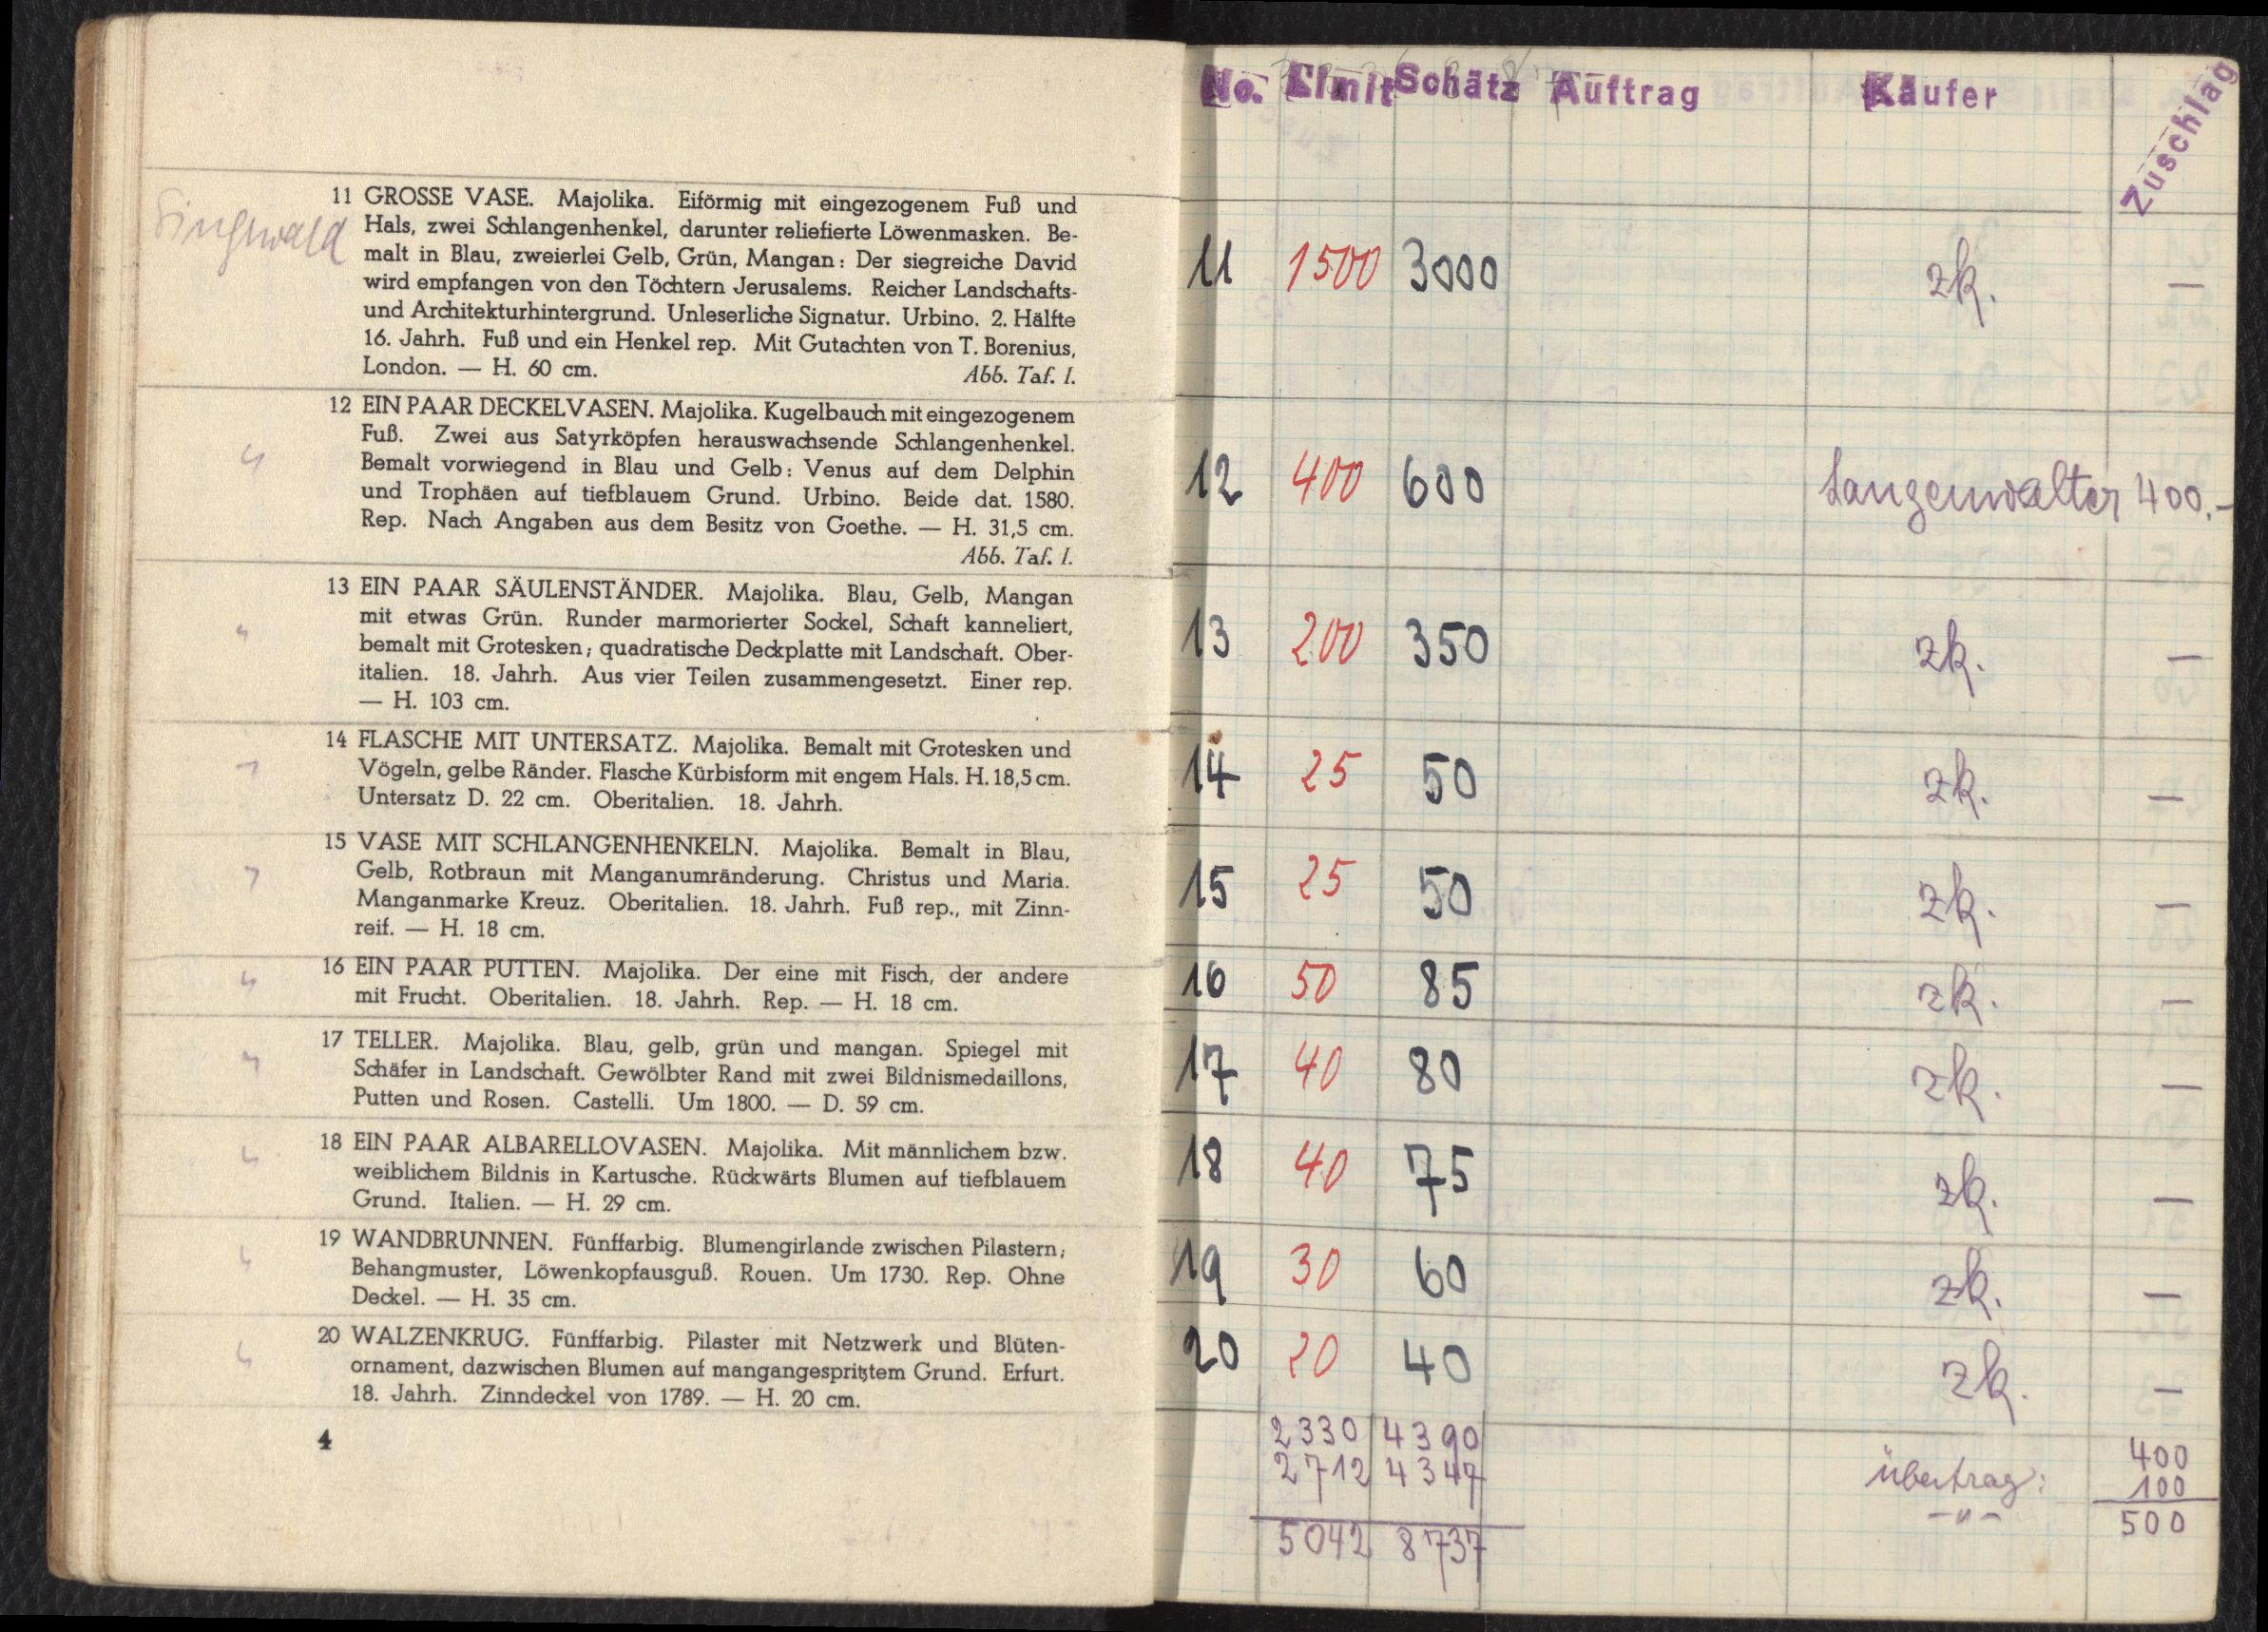 11 GROSSE VASE. Majolika. Eiförmig mit eingezogenem Fuß und
Hals, zwei Schlangenhenkel, darunter reliefierte Löwenmasken. Be-
malt in Blau, zweierlei Gelb, Grün, Mangan: Der siegreiche David
wird empfangen von den Töchtern Jerusalems. Reicher Landschafts-
und Architekturhintergrund. Unleserliche Signatur. Urbino. 2. Hälfte
16. Jahrh. Fuß und ein Henkel rep. Mit Gutachten von T. Borenius,
London. — H. 60 cm. Abb. Taf. I.
12 EIN PAAR DECKELVASEN. Majolika. Kugelbauch mit eingezogenem
Fuß. Zwei aus Satyrköpfen herauswachsende Schlangenhenkel.
Bemalt vorwiegend in Blau und Gelb: Venus auf dem Delphin
und Trophäen auf tiefblauem Grund. Urbino. Beide dat. 1580.
Rep. Nach Angaben aus dem Besitz von Goethe. — H. 31,5 cm.
Abb. Taf. I.
13 EIN PAAR SÄULENSTÄNDER. Majolika. Blau, Gelb, Mangan
mit etwas Grün. Runder marmorierter Sockel, Schaft kanneliert,
bemalt mit Grotesken; quadratische Deckplatte mit Landschaft. Ober-
italien. 18. Jahrh. Aus vier Teilen zusammengesetzt. Einer rep.
— H. 103 cm.
14 FLASCHE MIT UNTERSATZ. Majolika. Bemalt mit Grotesken und
Vögeln, gelbe Ränder. Flasche Kürbisform mit engem Hals. H. 18,5 cm.
Untersatz D. 22 cm. Oberitalien. 18. Jahrh.
15 VASE MIT SCHLANGENHENKELN. Majolika. Bemalt in Blau,
Gelb, Rotbraun mit Manganumränderung. Christus und Maria.
Manganmarke Kreuz. Oberitalien. 18. Jahrh. Fuß rep., mit Zinn-
reif. — H. 18 cm.
16 EIN PAAR PUTTEN. Majolika. Der eine mit Fisch, der andere
mit Frucht. Oberitalien. 18. Jahrh. Rep. — H. 18 cm.
17 TELLER. Majolika. Blau, gelb, grün und mangan. Spiegel mit
Schäfer in Landschaft. Gewölbter Rand mit zwei Bildnismedaillons,
Putten und Rosen. Castelli. Um 1800. — D. 59 cm.
18 EIN PAAR ALBARELLOVASEN. Majolika. Mit männlichem bzw.
weiblichem Bildnis in Kartusche. Rückwärts Blumen auf tiefblauem
Grund. Italien. — H. 29 cm.
19 WANDBRUNNEN. Fünffarbig. Blumengirlande zwischen Pilastern;
Behangmuster, Löwenkopfausguß. Rouen. Um 1730. Rep. Ohne
Deckel. — H. 35 cm.
20 WALZENKRUG. Fünffarbig. Pilaster mit Netzwerk und Blüten-
ornament, dazwischen Blumen auf mangangespritztem Grund. Erfurt.
18. Jahrh. Zinndeckel von 1789. — H. 20 cm.
4
No. Limit Schätz Auftrag Käufer Zuschlag
11 1500 3000 zk. —
12 400 600 Langenwalter 400.-
13 200 350 zk. —
14 25 50 zk. —
15 25 50 zk. —
16 50 85 zk. —
17 40 80 zk. —
18 40 75 zk. —
19 30 60 zk. —
20 20 40 zk. —
2330 4390 400
2712 4347 übertrag: 100
5042 8737 -"- 500